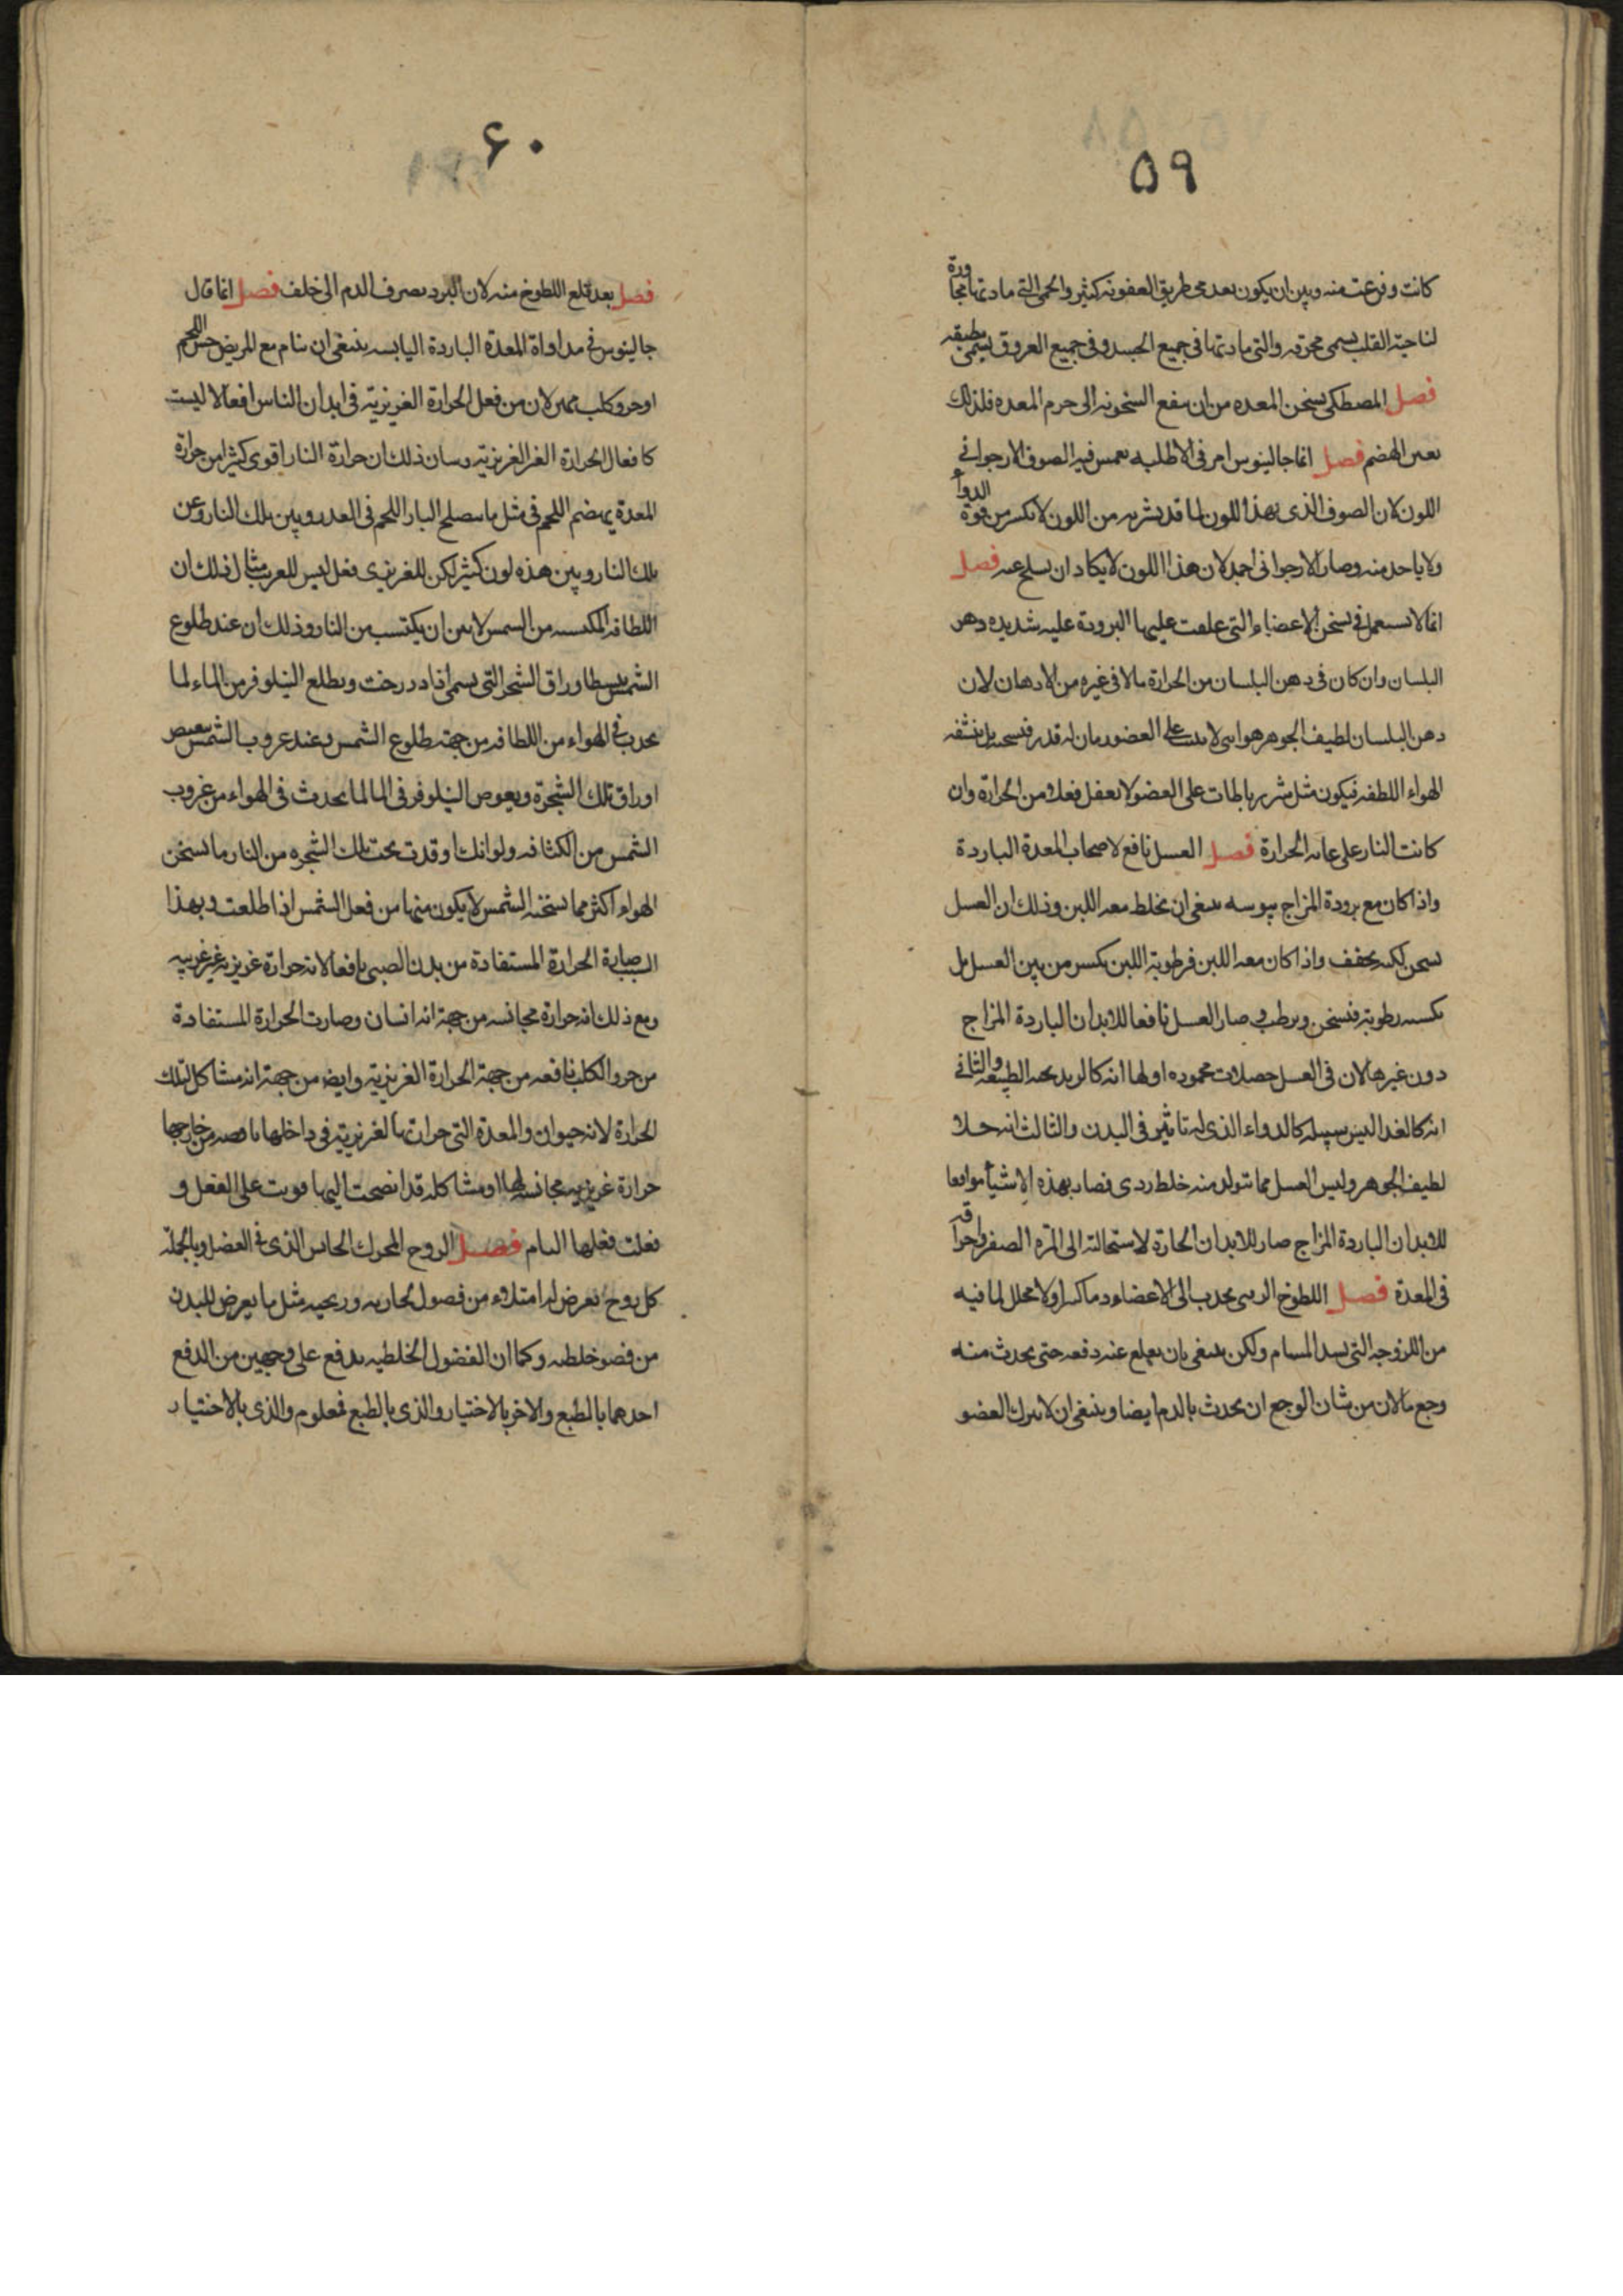 ٥٩
كانت وفرعت منه وبين ان يكون بعد مجاطريق العفونه كثير والحمى التى مادتها مجاورة
لناحية القلب يسمى محرقه والتى مادتها فى جميع الجسد وفى جميع العروق يسمى مطبقه
فصل المصطكى يسخن المعده من ان يبقع السخونه الى جرم المعده فلذلك
يعين الهضم فصل انما جالينوس امر فى الاطليه يغمس فيه الصوف الارجوانى
اللون لان الصوف الذى بهذا اللون لما قد يشربه من اللون لا يكسر من قوة الدواء
ولا ياخذ منه وصار الارجوانى احمد لان هذا اللون لا يكاد ان يسلخ عنه فصل
انما لا يستعمل فى تسخن الاعضاء التى علمت عليها البرودة عليه شديده دهن
البلسان وان كان فى دهن البلسان من الحرارة مالا فى غيره من الادهان لان
دهن البلسان لطيف الجوهر هوايى لا يثبت على العضو زمان له قدر فيسخنه بل ينشفه
الهواء اللطفه فيكون مثل شرر بالمات على العضو لا يعفل فعله من الحرارة وان
كانت النار على غايه الحرارة فصل العسل نافع لاصحاب المعدة الباردة
واذا كان مع برودة المزاج يبوسه ينبغى ان يخلط معه اللبن وذلك ان العسل
يسخن لكنه يجفف واذا كان معه اللبن فرطوبة اللبن يكسر من يبن العسل بل
يكسبه رطوبة فتسخن ويرطب وصار العسل نافعا للابدان الباردة المزاج
دون غيرها لان فى العسل خصلات محموده اولها انه كالزبد يحبه الطبيعه والثانى
انه كالغذا ليس سبيله كالدواء الذى له تاثير فى البدن والثالث انه حلا
لطيف الجوهر وليس العسل مما يتولد منه خلط ردى فصار بهذه الاشياء موافقا
للابدان الباردة المزاج صار للابدان الحارة لاستحالته الى المره الصفر واحراقه
فى المعدة فصل اللطوخ الزيتى يجذب الى الاعضاء دما كثيرا ولا يحلل لما فيه
من اللزوجه التى يسد المسام ولكن ينبغى بان يقلع عنه دفعه حتى يحدث منه
وجع ما لان من شان الوجع ان يحدث بالدم ايضا وينبغى ان لا يترك العضو
٦٠
فصل بعد قلع اللطوخ منه لان البرد يصرف الدم الى خلف فصل انما قال
جالينوس فى مداواة المعدة الباردة اليابسه ينبغى ان ينام مع المريض حسن اللحم
او جرو كلب سمين لان من فعل الحرارة الغريزية فى ابدان الناس افعالا ليست
كافعال الحرارة الغير الغريزيه وبيان ذلك ان حرارة النار اقوى كثيرا من حرارة
المعدة يهضم اللحم فى مثل ما يصلح النار اللحم فى القدر وبين تلك النار وعن
تلك النار وبين هذه لون كثير لكن للغريزى فعل ليس للغريب مثال ذلك ان
اللطافه المكتسبه من الشمس لا يمن ان يكتسب من النار وذلك ان عند طلوع
الشمس يبسط اوراق الشجر التى يسمى اذاد درخت ويطلع النيلوفر من الماء لما
يحدث فى الهواء من اللطافه من جهة طلوع الشمس وعند غروب الشمس يقبض
اوراق تلك الشجرة ويغوص النيلوفر فى الما لما يحدث فى الهواء من غروب
الشمس من الكثافه ولو انك اوقدت تحت تلك الشجره من النار ما يسخن
الهواء اكثر مما تسخنه الشمس لا يكون منها من فعل الشمس اذا طلعت وبهذا
السبب صارة الحرارة المستفادة من بدن الصبى نافعا لانه حرارة غريزيه غير غريبه
ومع ذلك انه حرارة مجانسه من جهة انه انسان وصارت الحرارة المستفادة
من جرو الكلب نافعه من جهة الحرارة الغريزية وايضا من جهة انه مشاكل لتلك
الحرارة لانه حيوان والمعدة التى حرارتها الغريزية فى داخلها ناقصه من خارجها
حرارة غريزيه مجانسه لها او مشاكله قد انضمت اليها قويت على الفعل و
فعلت فعلها التام فصل الروح المحرك الحاس الذى فى العضل وبالجملة
كل روح يعرض له امتلاء من فصول بخاريه وريحيه مثل ما يعرض للبدن
من فصو خلطيه وكما ان الفضول الخلطيه يدفع على وجهين من الدفع
احدهما بالطبع والاخر بالاختيار والذى بالطبع فمعلوم والذى بالاختيار